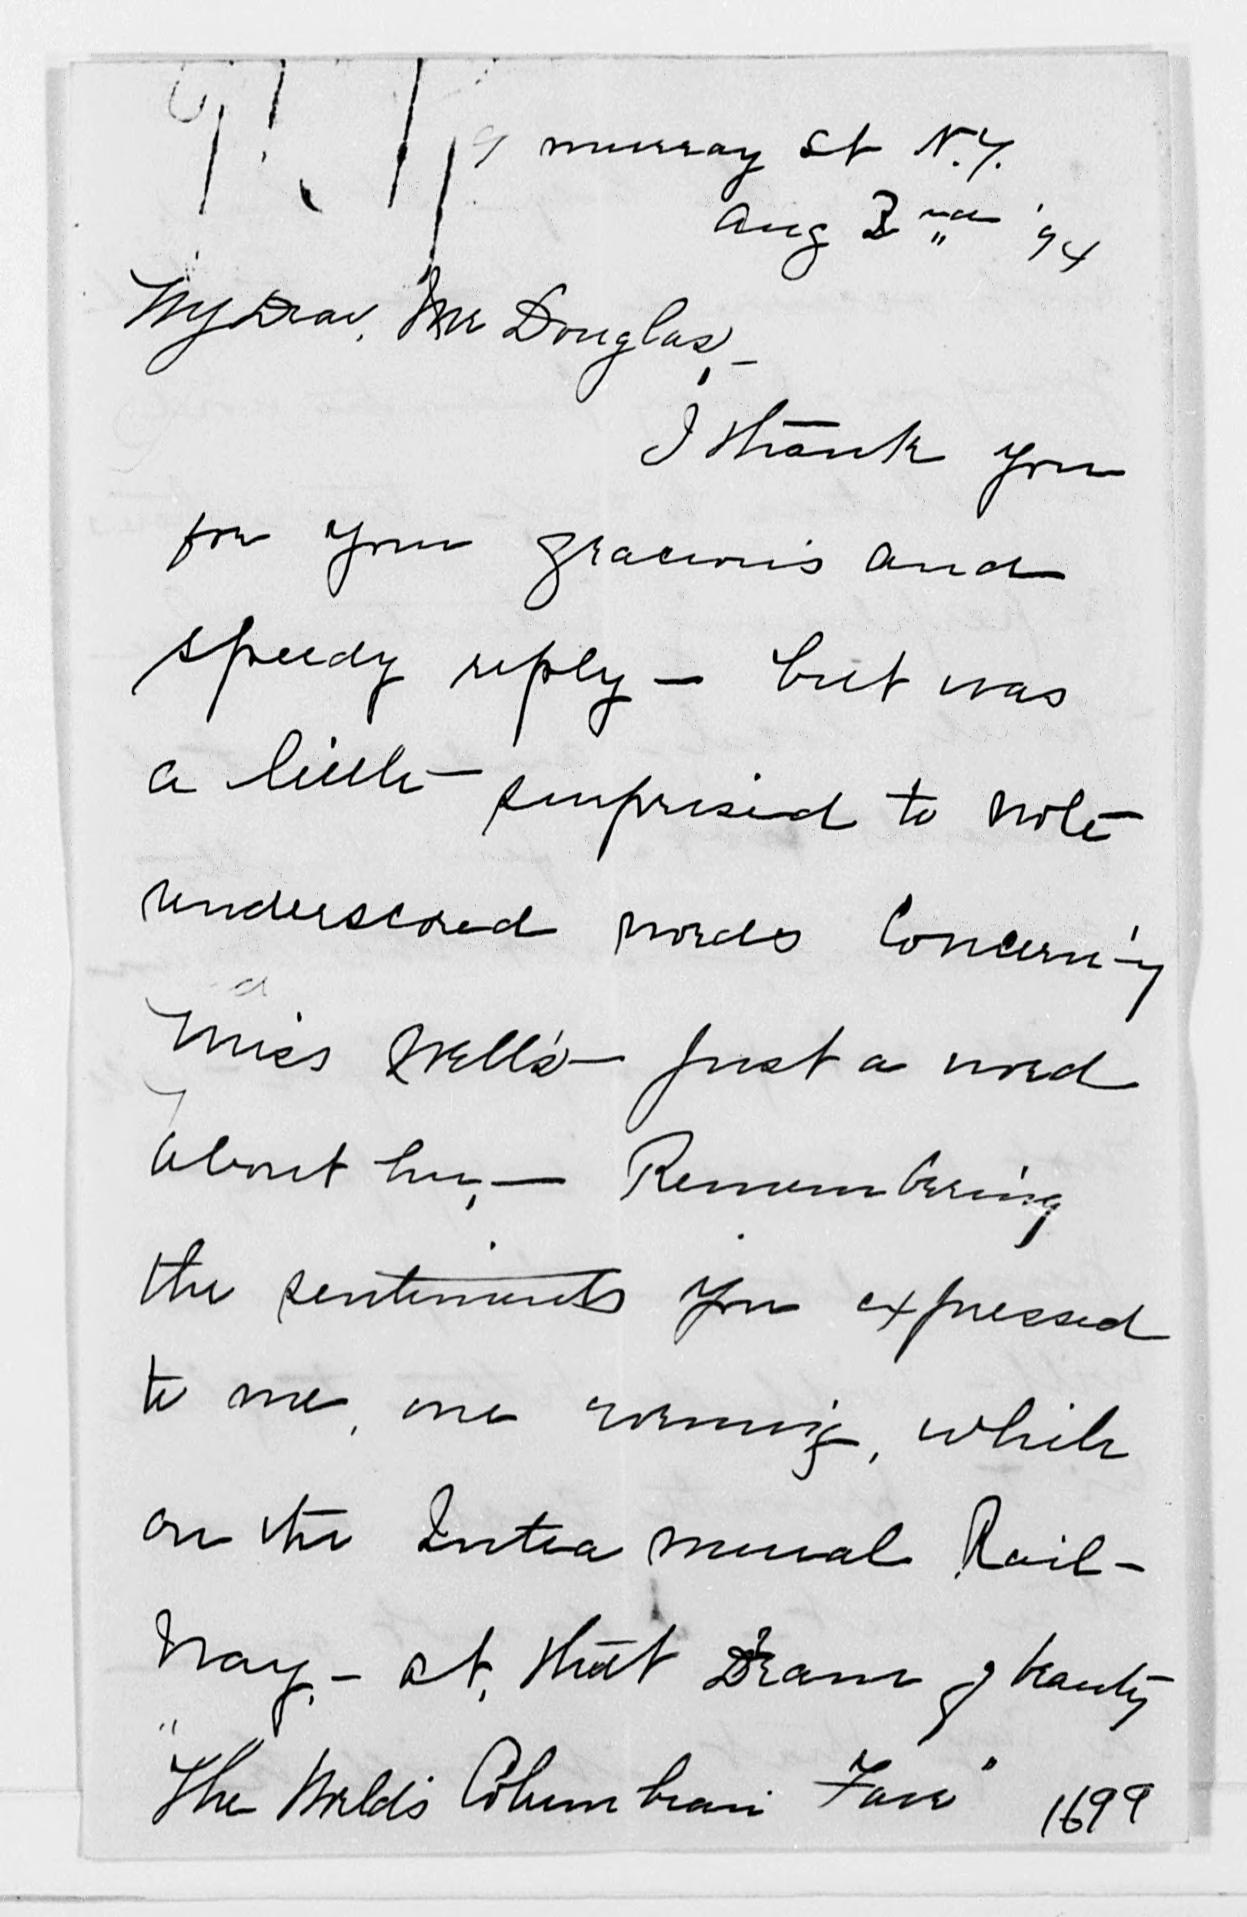 9 Murray St N.Y.
Aug 3rd '94
My Dear, Mr Douglas,—
I thank you
for your gracious and
speedy reply — but was
a little surprised to note
underscored words Concern'g
Miss Wells — Just a word
about her, — Remembering
the sentiments you expressed
to me, one morning, while
on the Intra mural Rail-
Way, — at, that Dream of beauty
"The World's Columbian Fair"
1699